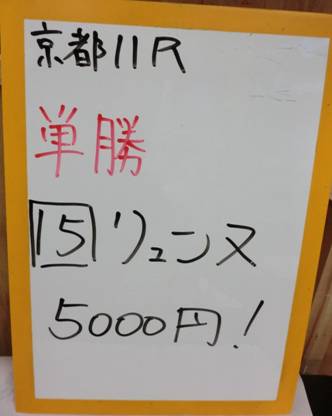 京都11R
単勝
15リュンヌ
5000円!